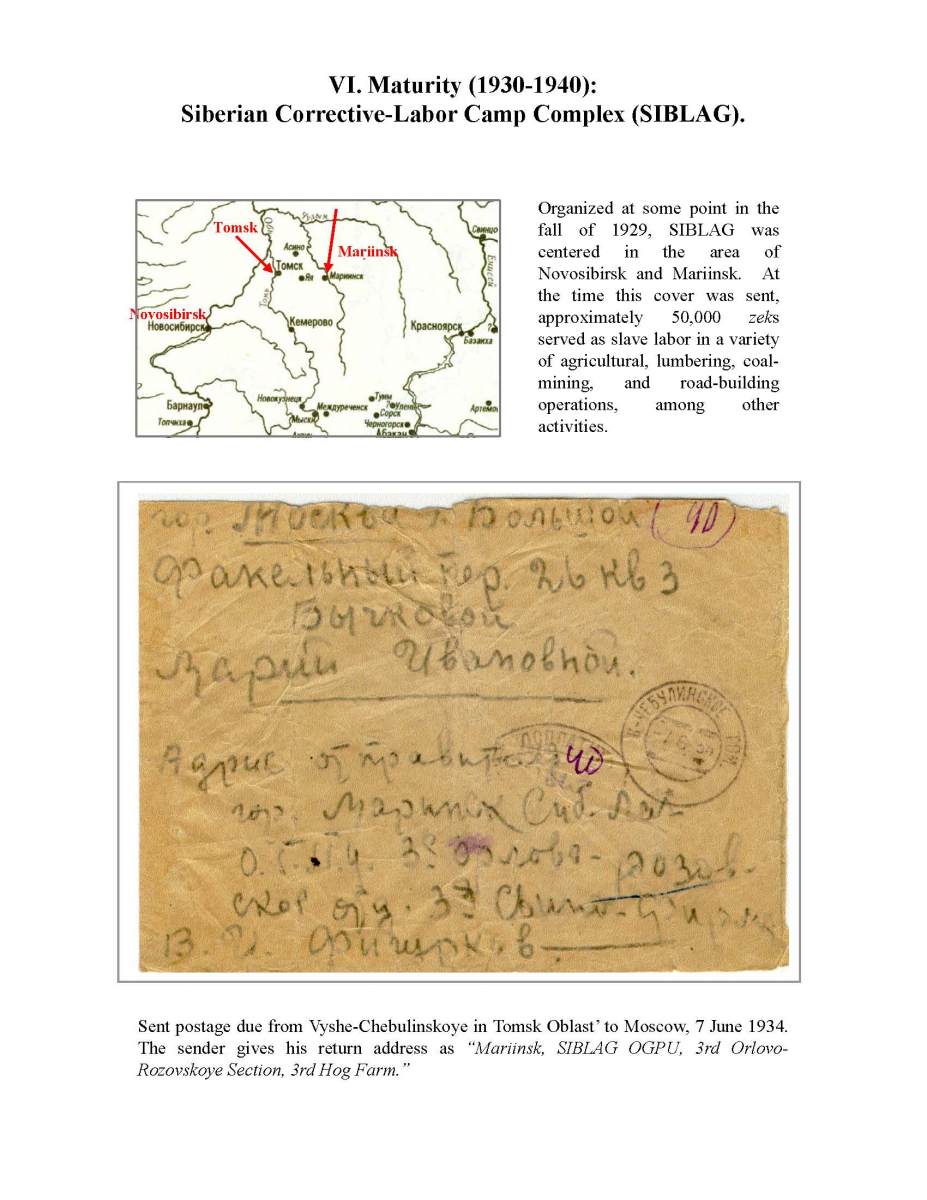 VI. Maturity (1930-1940):
Siberian Corrective-Labor Camp Complex (SIBLAG).
Tomsk
Mariinsk
Novosibirsk
Свинцо
Обь
Енисей
Асино
Томск
Яя
Мариинск
Томь
Новосибирск
Кемерово
Красноярск
Базаиха
Барнаул
Топчиха
Новокузнецк
Междуреченск
Мыски
Туим
Сорск
Черногорск
Абакан
Артемо
Organized at some point in the
fall of 1929, SIBLAG was
centered in the area of
Novosibirsk and Mariinsk. At
the time this cover was sent,
approximately 50,000 zeks
served as slave labor in a variety
of agricultural, lumbering, coal-
mining, and road-building
operations, among other
activities.
гор. Москва Большой 40
Факельный пер. 26 кв 3
Бычковой
Марии Ивановной.
В-ЧЕБУЛИНСКОЕ ТОМ.
ДОПЛАТИТЬ
40
Адрис отправителя
гор. Маринск Сиб. Лаг
О.Г.П.у. 3е Орлово-розов-
ское отд. 3я Свино-Фирма
В. И. Фигурков
Sent postage due from Vyshe-Chebulinskoye in Tomsk Oblast’ to Moscow, 7 June 1934.
The sender gives his return address as “Mariinsk, SIBLAG OGPU, 3rd Orlovo-
Rozovskoye Section, 3rd Hog Farm.”